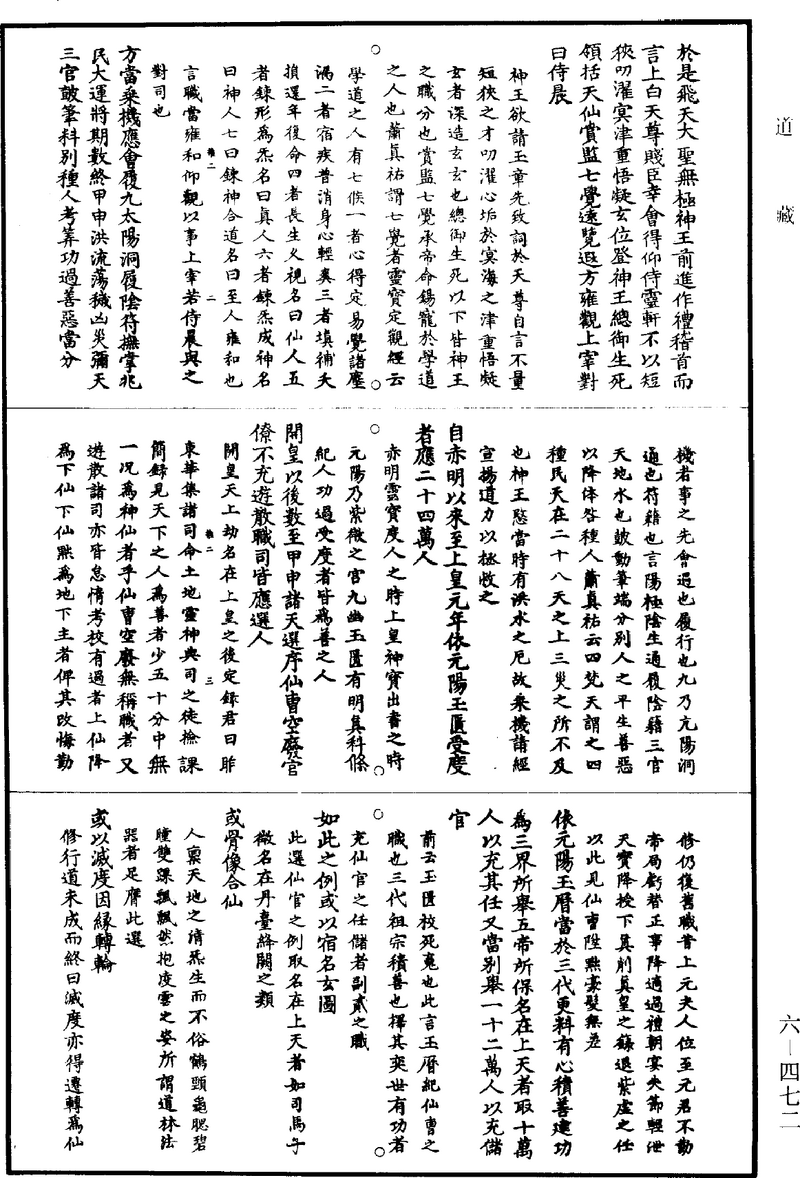 道藏
於是飛天大聖無極神王前進作禮稽首而
言上白天尊賤臣幸會得仰侍靈軒不以短
狹叨濯冥津重悟凝玄位登神王總御生死
領括天仙賞監七覺遠覽遐方雍觀上宰對
曰侍晨
神王欲請玉章先致詞於天尊自言不量
短狹之才叨濯心垢於冥海之津重悟凝
玄者深造玄玄也總御生死以下皆神王
之職分也賞監七覺承帝命錫寵於學道
之人也蕭真祐謂七覺者靈寶定觀經云
學道之人有七候一者心得定易覺諸塵
漏二者宿疾普消身心輕爽三者填補夭
損還年復命四者長生久視名曰仙人五
者鍊形為炁名曰真人六者鍊炁成神名
曰神人七曰鍊神合道名曰至人雍和也
言職當雍和仰觀以事上宰若侍晨與之
對司也
方當乘機應會履九太陽洞履陰符撫掌兆
民大運將期數終甲申洪流蕩穢凶災彌天
三官鼓筆料別種人考筭功過善惡當分
機者事之先會遇也履行也九乃亢陽洞
通也符籍也言陽極陰生通履陰籍三官
天地水也鼓動筆端分別人之平生善惡
以降休咎種人蕭真祐云四梵天謂之四
種民天在二十八天之上三災之所不及
也神王愍當時有洪水之厄故乘機請經
宣揚道力以拯救之
自赤明以來至上皇元年依元陽玉匱受度
者應二十四萬人
赤明雲寶度人之時上皇神寶出書之時
元陽乃紫微之宮九幽玉匱有明真科條
紀人功過受度者皆為善之人
開皇以後數至甲申諸天選序仙曹空廢官
僚不充遊散職司皆應選人
開皇天上劫名在上皇之後定錄君曰昨
東華集諸司命土地靈神典司之徒檢課
簡錄見天下之人為善者少五十分中無
一況為神仙者乎仙曹空廢無稱職者又
遊散諸司亦皆怠惰考校有過者上仙降
為下仙下仙黜為地下主者俾其改悔勤
修仍復舊職昔上元夫人位至元君不勤
帝局虧替正事降適過禮朝宴失節輕泄
天寶降授下真削真皇之錄退紫虛之任
以此見仙曹陞黜豪髮無差
依元陽玉曆當於三代更料有心積善建功
為三界所舉五帝所保名在上天者取十萬
人以充其任又當別舉一十二萬人以充儲
官
前云玉匱校死鬼也此言玉曆紀仙曹之
職也三代祖宗積善也擇其奕世有功者
充仙官之任儲者副貳之職
如此之例或以宿名玄圖
此選仙官之例取名在上天者如司馬子
微名在丹臺絳闕之類
或骨像合仙
人稟天地之清炁生而不俗鶴頸龜腮碧
瞳雙踝飄飄然抱凌雲之姿所謂道林法
器者足膺此選
或以滅度因緣轉輪
修行道未成而終曰滅度亦得遷轉為仙
六—四七二